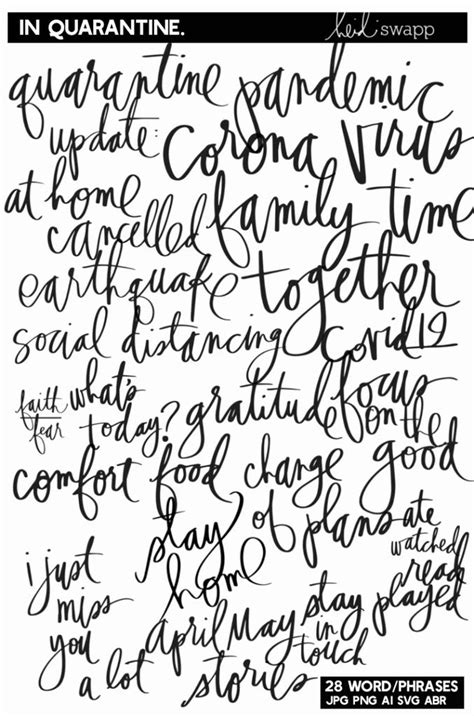 IN QUARANTINE.
heidi swapp
quarantine pandemic
update: corona virus
at home family time
cancelled
earthquake together
social distancing covid19
faith what's gratitude focus
fear today? on the
comfort food change good
stay of plans ate
watched
i just home read
miss april May stay played
you in
a lot stories touch
28 WORD/PHRASES
JPG PNG AI SVG ABR